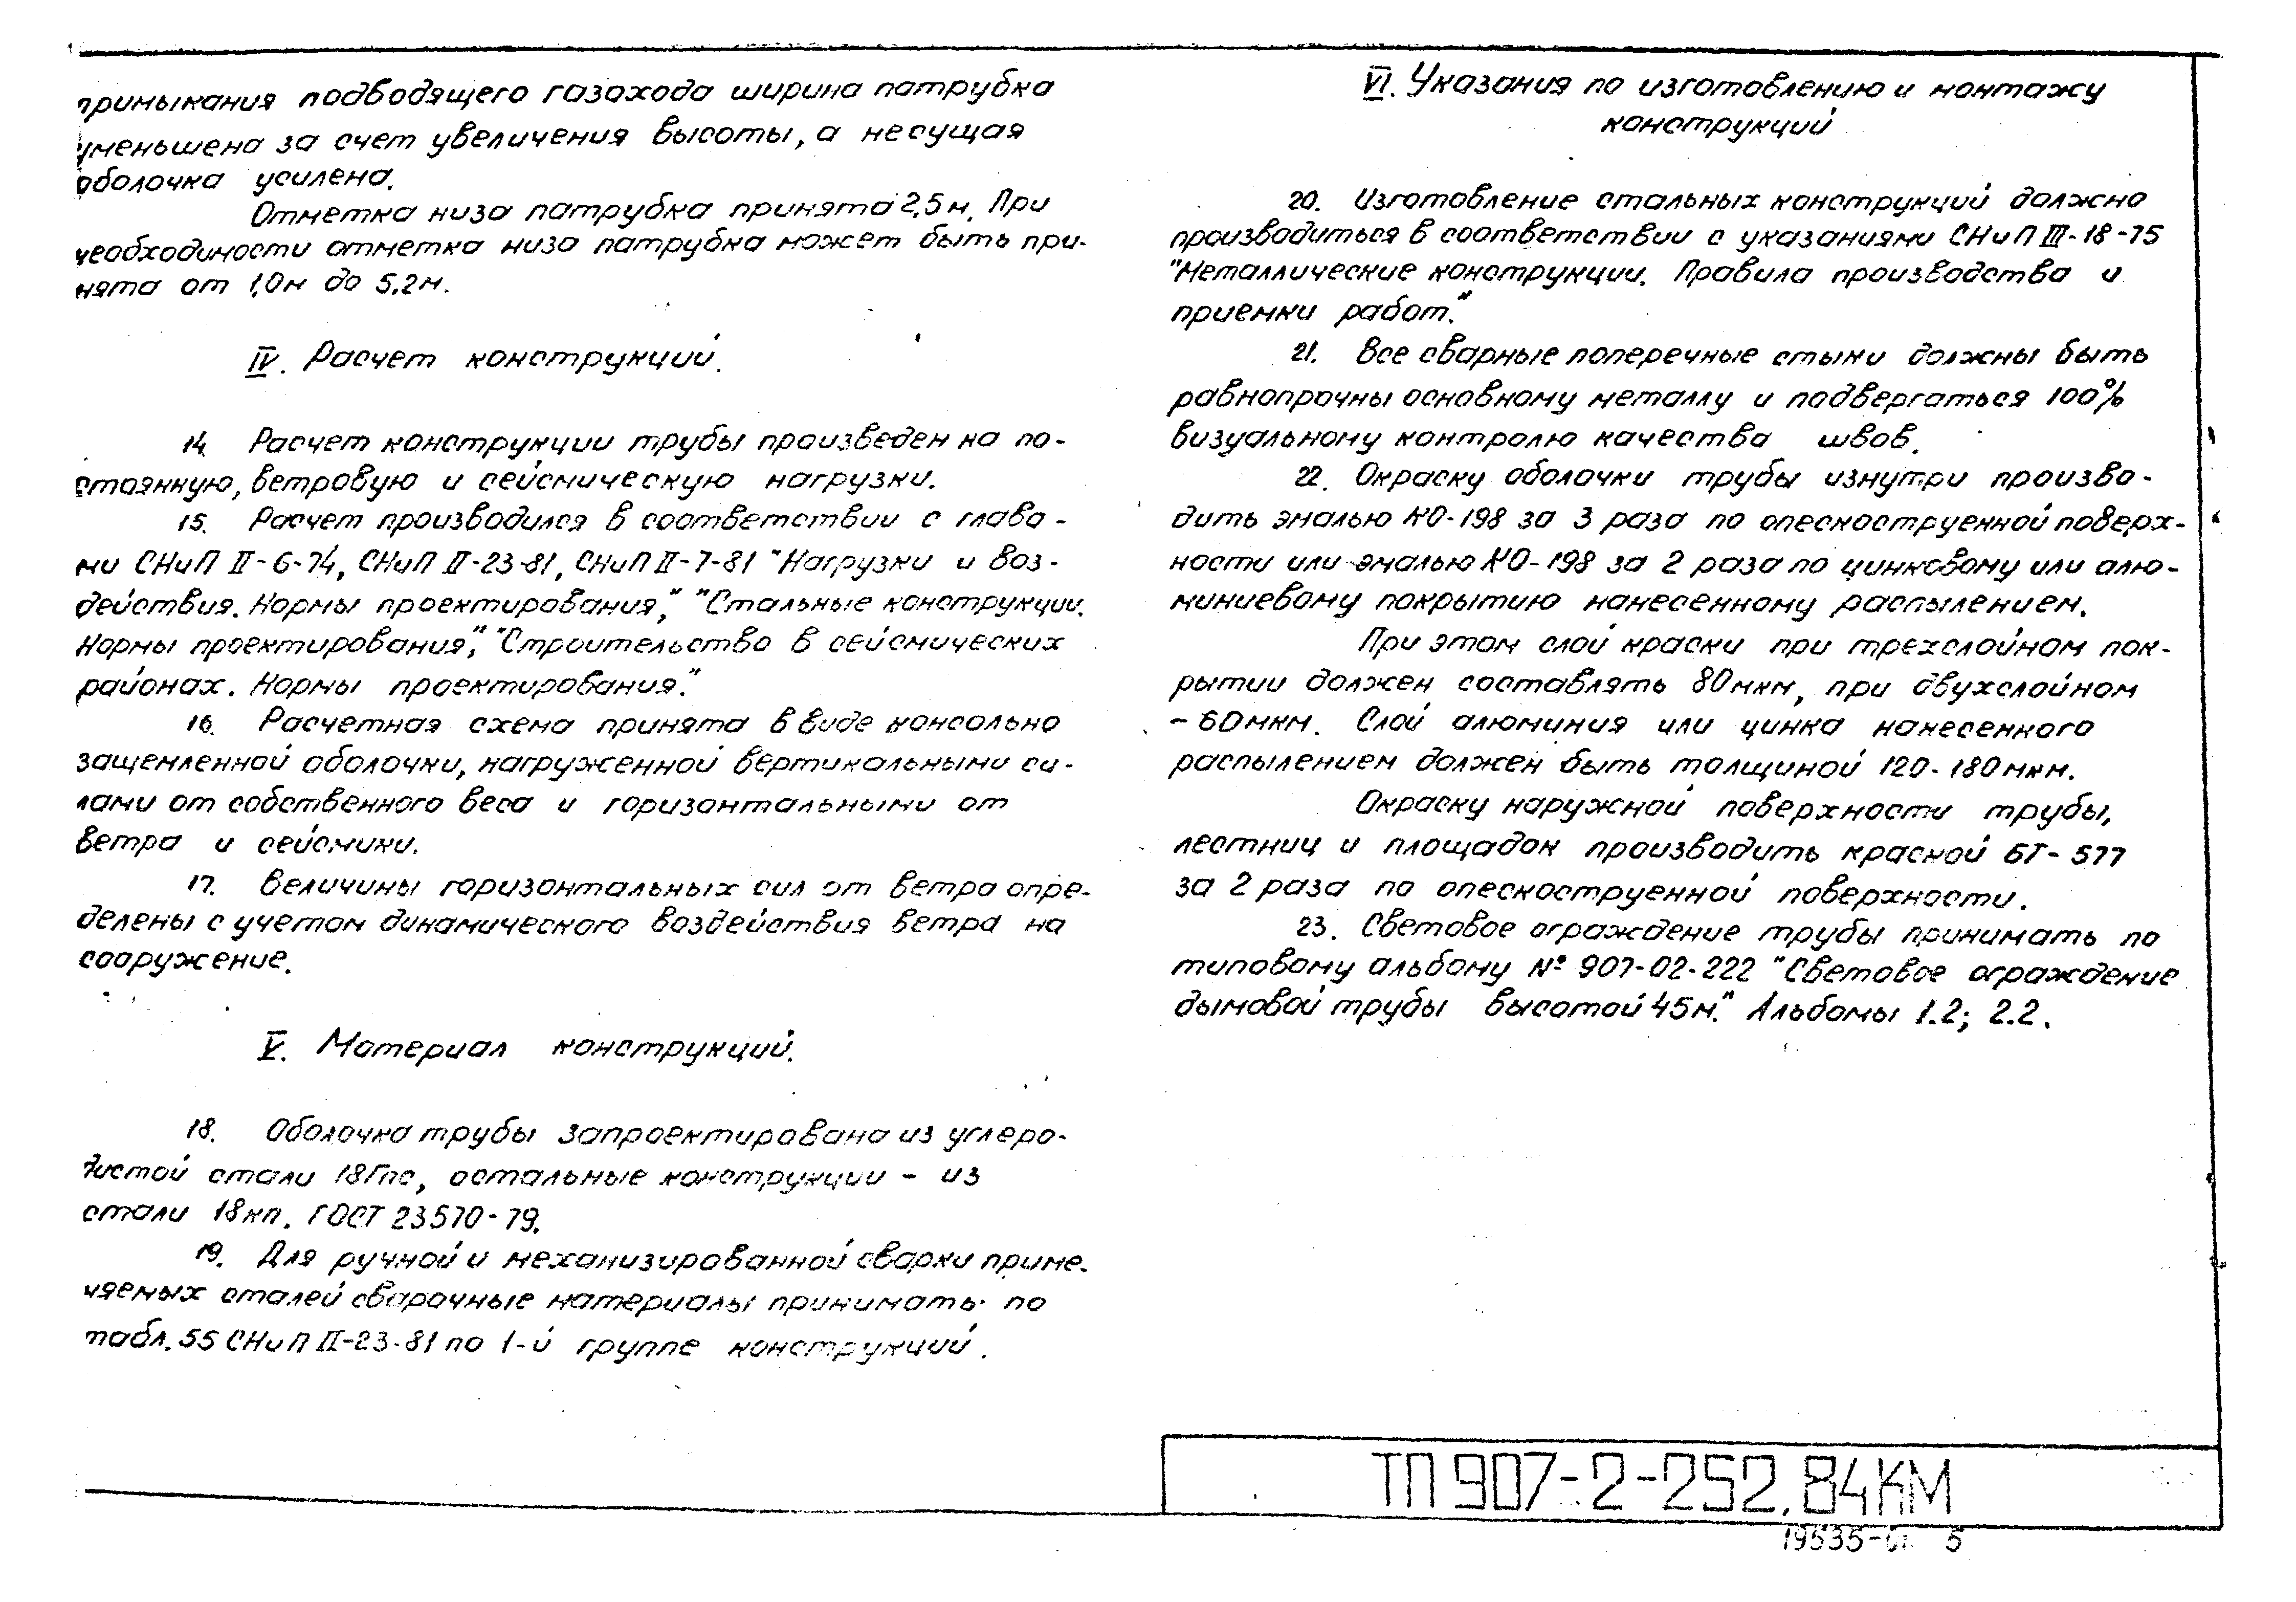 примыкания подводящего газохода ширина патрубка
уменьшена за счет увеличения высоты, а несущая
оболочка усилена.
Отметка низа патрубка принята 2,5м. При
необходимости отметка низа патрубка может быть при-
нята от 1,0м до 5,2м.
IV. Расчет конструкций.
14. Расчет конструкции трубы произведен на по-
стоянную, ветровую и сейсмическую нагрузки.
15. Расчет производился в соответствии с глава-
ми СНиП II-6-74, СНиП II-23-81, СНиП II-7-81 "Нагрузки и воз-
действия. Нормы проектирования", "Стальные конструкции.
Нормы проектирования", "Строительство в сейсмических
районах. Нормы проектирования."
16. Расчетная схема принята в виде консольно
защемленной оболочки, нагруженной вертикальными си-
лами от собственного веса и горизонтальными от
ветра и сейсмики.
17. Величины горизонтальных сил от ветра опре-
делены с учетом динамического воздействия ветра на
сооружение.
V. Материал конструкций.
18. Оболочка трубы запроектирована из углеро-
дистой стали 18Гпс, остальные конструкции - из
стали 18кп. ГОСТ 23570-79.
19. Для ручной и механизированной сварки приме-
няемых сталей сварочные материалы принимать по
табл. 55 СНиП II-23-81 по 1-й группе конструкций.
VI. Указания по изготовлению и монтажу
конструкций
20. Изготовление стальных конструкций должно
производиться в соответствии с указаниями СНиП III-18-75
"Металлические конструкции. Правила производства и
приемки работ."
21. Все сварные поперечные стыки должны быть
равнопрочны основному металлу и подвергаться 100%
визуальному контролю качества швов.
22. Окраску оболочки трубы изнутри произво-
дить эмалью КО-198 за 3 раза по опескоструенной поверх-
ности или эмалью КО-198 за 2 раза по цинковому или алю-
миниевому покрытию нанесенному распылением.
При этом слой краски при трехслойном пок-
рытии должен составлять 80мкм, при двухслойном
- 60мкм. Слой алюминия или цинка нанесенного
распылением должен быть толщиной 120-180мкм.
Окраску наружной поверхности трубы,
лестниц и площадок производить краской БТ-577
за 2 раза по опескоструенной поверхности.
23. Световое ограждение трубы принимать по
типовому альбому № 907-02-222 "Световое ограждение
дымовой трубы высотой 45м." Альбомы 1.2; 2.2.
ТП 907-2-252.84КМ
19535-01 5